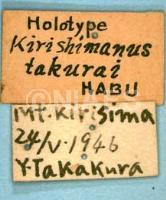 Holotype
Kirishimanus
takurai
HABU
Mt. Kirisima
24/V. 1946
Y. Takakura